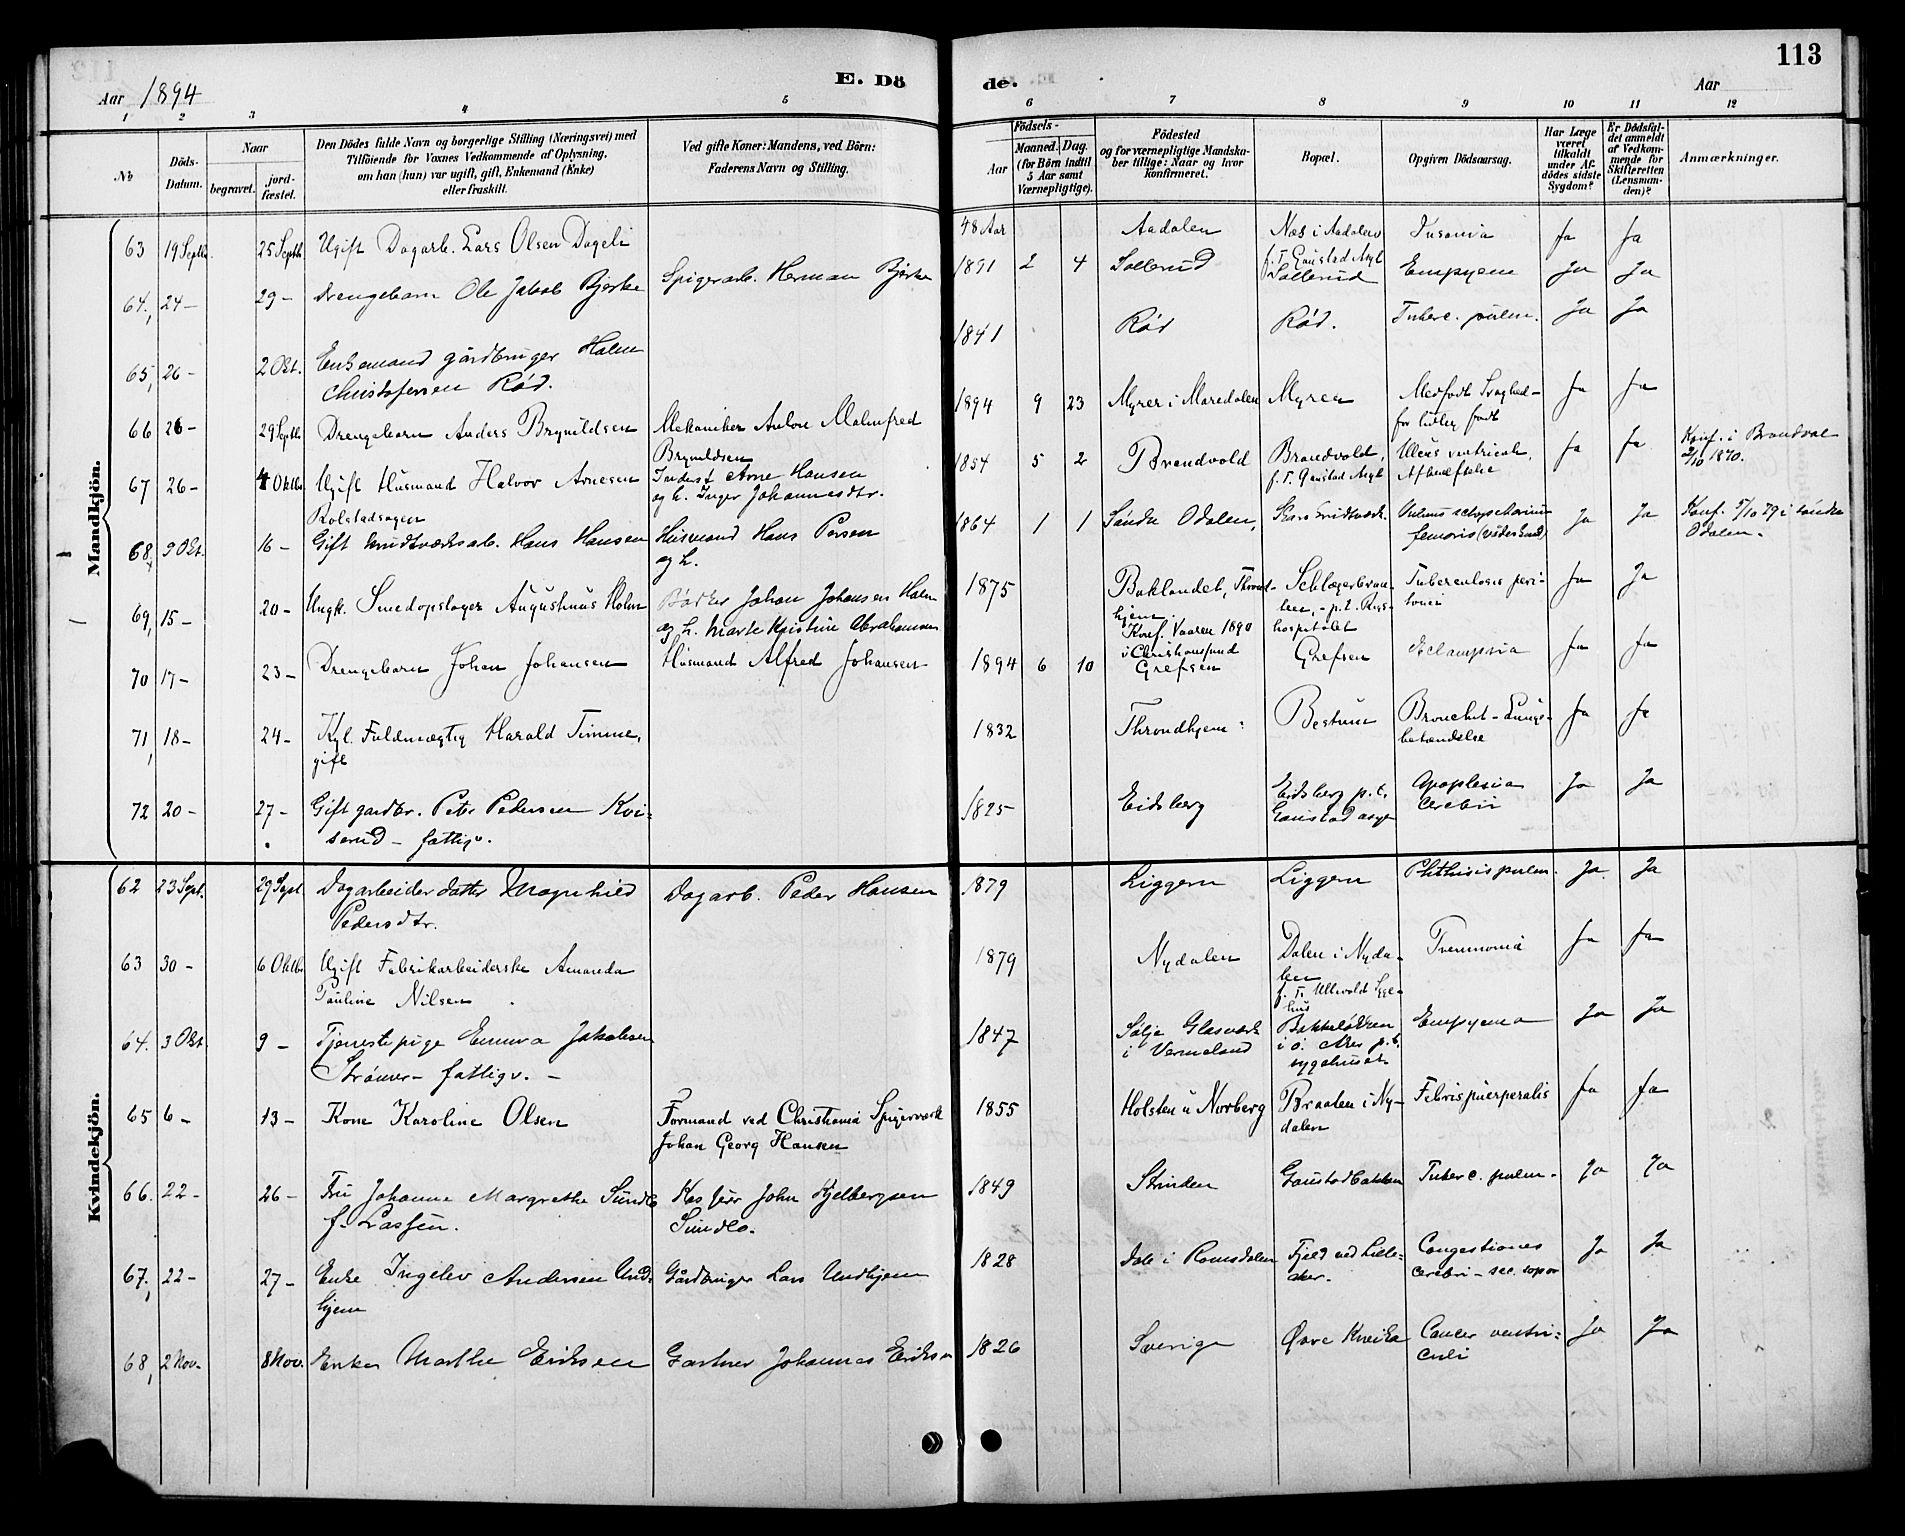 113
E. Dö de.
Aar 1894
Aar
1 2 3 4 5 6 7 8 9 10 11 12
№
Döds-Datum.
Naar
begravet.
jord-fæstet.
Den Dödes fulde Navn og borgerlige Stilling (Næringsvei) med
Tilföiende for Voxnes Vedkommende af Oplysning,
om han (hun) var ugift, gift, Enkemand (Enke)
eller fraskilt.
Ved gifte Koner: Mandens, ved Börn:
Faderens Navn og Stilling.
Födsels-
Aar
Maaned. Dag.
(for Börn indtil
5 Aar samt
Værnepligtige).
Födested
og for værnepligtige Mandska-
ber tillige: Naar og hvor
konfirmeret.
Bopæl.
Opgiven Dödsaarsag.
Har Læge
været
tilkaldt
under Af-
dödes sidste
Sygdom?
Er Dödsfal-
det anmeldt
af Vedkom-
mende for
Skifteretten
(Lensman-
den)?
Anmærkninger.
Mandkjön.
63 19 Septb. 25 Septb. Ugift Dagarb. Lars Olsen Dageli 48 Aar Aadalen Næs i Aadalen Insania Ja Ja
f. T. Gaustad Asyl
64, 24 - 29 - Drengebarn Ole Jakob Bjerke Spigerarb. Herman Bjerke 1891 2 4 Sollerud Sollerud Empyem Ja Ja
65, 26 - 2 Okt. Enkemand gårdbruger Halvor
Christofersen Rød. 1841 Rød Rød. Tuberc. pulm. Ja Ja
66 26 - 29 Septb. Drengebarn Anders Brynildsen Mekaniker Anton Malmfred
Brynildsen 1894 9 23 Myrer i Maredalen Myren Medfødt Svaghed -
for tidlig født Ja Ja
67 26 - 4 Oktb. Ugift Husmand Halvor Arnesen
Rolstadsagen Inderst Arne Hansen
og h. Inger Johannesdtr. 1854 5 2 Brandvold Brandvold,
f. T. Gaustad Asyl Ulcus ventriculi,
Afkræftelse Ja Ja Konf. i Brandval
2/10 1870.
68, 9 Okt. 16 - Gift Krudtværksarb. Hans Hansen Husmand Hans Persen
og h. 1864 1 1 Søndre Odalen, Ja Ja Konf. 5/10 79 i søndre
Odalen.
69, 15 - 20 - Ungk. Smedopslager Augustinus Holm Bødker Johan Johansen Holm
og h. Marte Kristine Abrahamsen 1875 Baklandet, Thrond-
hjem
Konf. Vaaren 1890
i Christiansund Schlægerbrau-
en, - p. t. Rigs-
hospitalet Tuberculosis peri-
tonei Ja Ja
70 17 - 23 - Drengebarn Johan Johansen Husmand Alfred Johansen 1894 6 10 Grefsen Grefsen Eclampsia Ja Ja
71, 18 - 24 - Kgl. Fuldmægtig Harald Timme,
gift 1832 Throndhjem: Bestum Bronchit - Lunge-
betændelse Ja Ja
72 20 - 27 - Gift gardbr. Peter Pedersen Kvi-
serud - fattigv. 1825 Eidsberg Eidsberg p. t.
Gaustad asyl Apoplexia
cerebri Ja Ja
Kvindekjön.
62 23 Sept. 29 Sept. Dagarbeiderdatter Magnhild
Pedersdtr. Dagarb. Peder Hansen 1879 Liggern Liggern Phthisis pulm. Ja Ja
63 30 - 6 Oktb. Ugift Fabrikarbeiderske Amanda
Pauline Nilsen 1879 Nydalen Dalen i Nyda-
len
f. T. Ullevold Syge-
hus Ja Ja
64. 3 Okt. 9 - Tjenestepige Emma Jakobsen
Strømer - fattigv. - 1847 Sølje Glasværk
i Vermeland Bakkeløkken
i ø. Aker p. t.
sygehuset Empyema Ja Ja
65 6 - 13 - Kone Karoline Olsen Formand ved Christiania Spigerværk
Johan Georg Hansen 1855 Holsten u Norberg Braaten i Ny-
dalen Febris puerperalis Ja Ja
66. 22 - 26 - Fru Johanne Margrethe Sundbo
f. Lassen. Kasserer John Kjelbergsen
Sundbo. 1849 Strinden Gaustadbakken Tuberc. pulm. Ja Ja
67, 22 - 27 - Enke Ingelev Andersen Und-
hjem Gårdbruger Lars Undhjem 1828 Dale i Romsdalen Fjeld ved Lille-
aker. Congestiones
cerebri - sec. sopor Ja Ja
68, 2 Nov. 8 Nov. Enke Marthe Eriksen Gartner Johannes Eriksen 1826 Sverige Øvre Kneika Cancer ventri-
culi Ja Ja